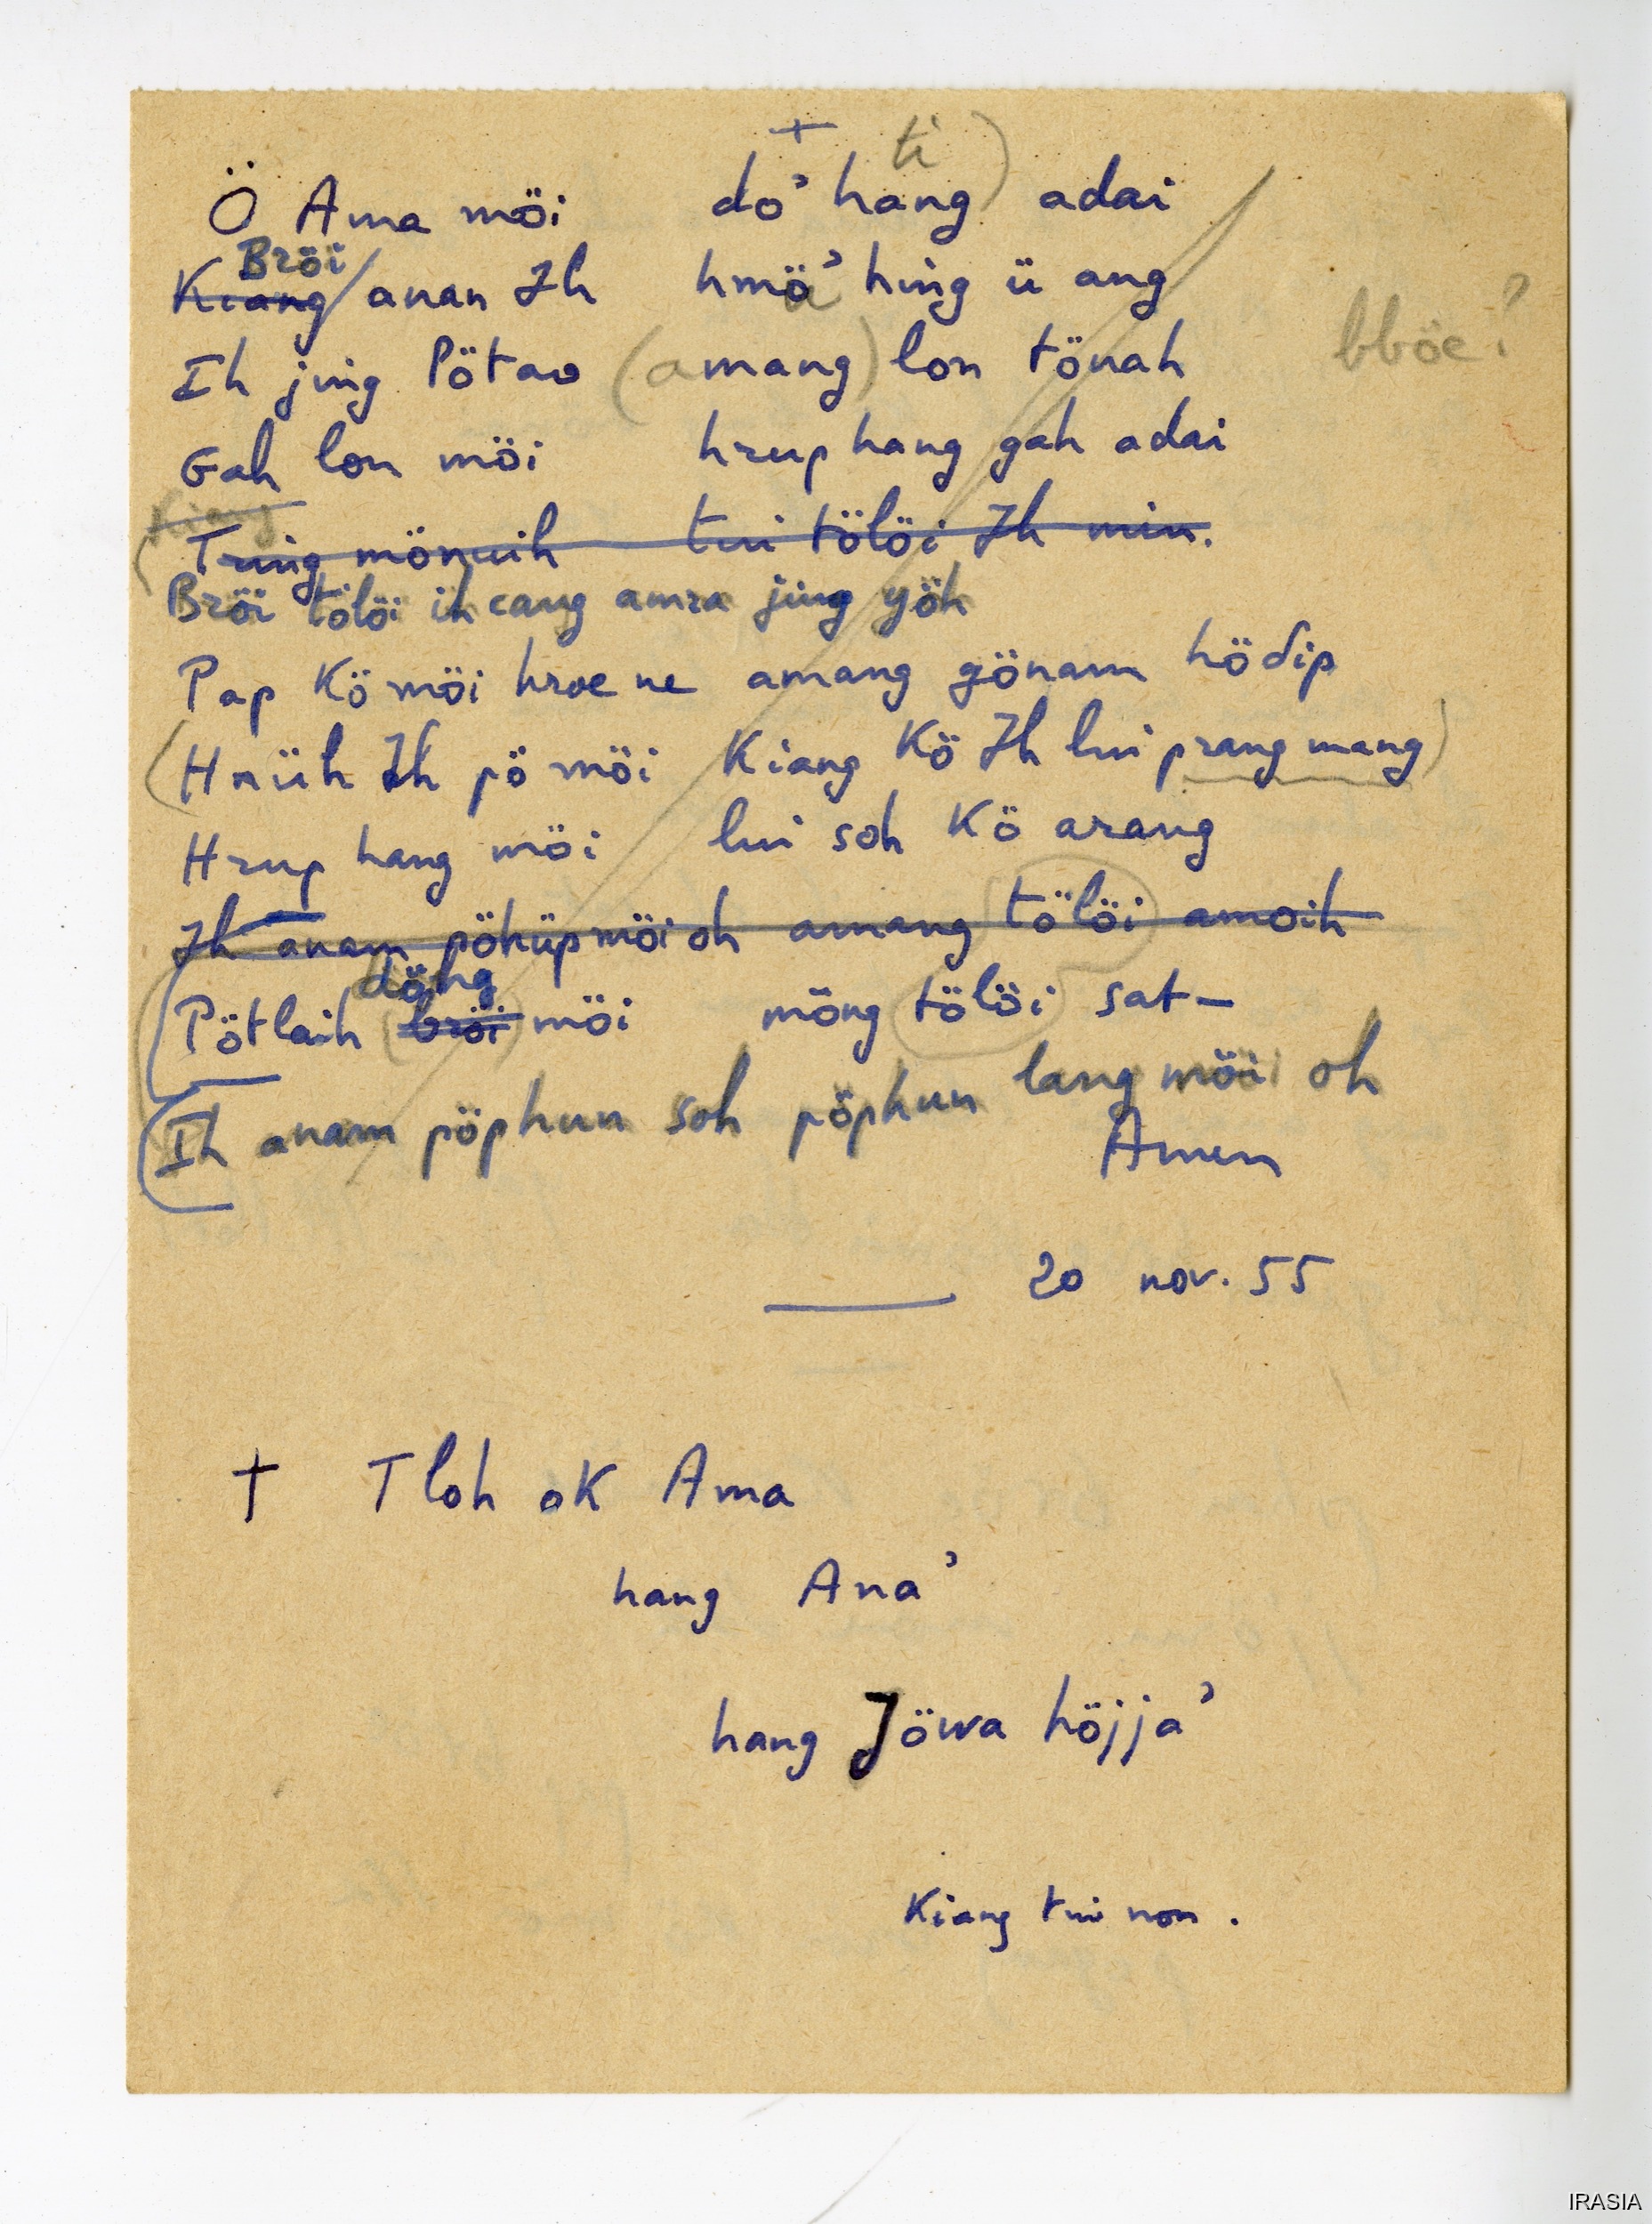 + ti
Ö Ama möi do' hang) adai
Bröi
Kiang/ anan Ih hmö' hing ü ang
bböe?
Ih jing Pötao (amang) lon tönah
Gah lon möi hrup hang gah adai
Kiang
(Tring mönuih tui tölöi Ih min.
Bröi tölöi ih cang amra jing yöh
Pap Kö möi hroe ne amang gönam hödip
(Hnüh Ih pö möi Kiang Kö Ih lui prang mang)
Hrup hang möi lui soh Kö arang
Ih anam pöhüp möi oh amang tölöi amoih
döng
Pötlaih (bröi) möi möng tölöi sat–
Ih anam pöphun soh pöphun lang möi oh
Amen
20 nov. 55
† Tloh oK Ama
hang Ana'
hang Jöwa höjja'
Kiang tui non.
IRASIA